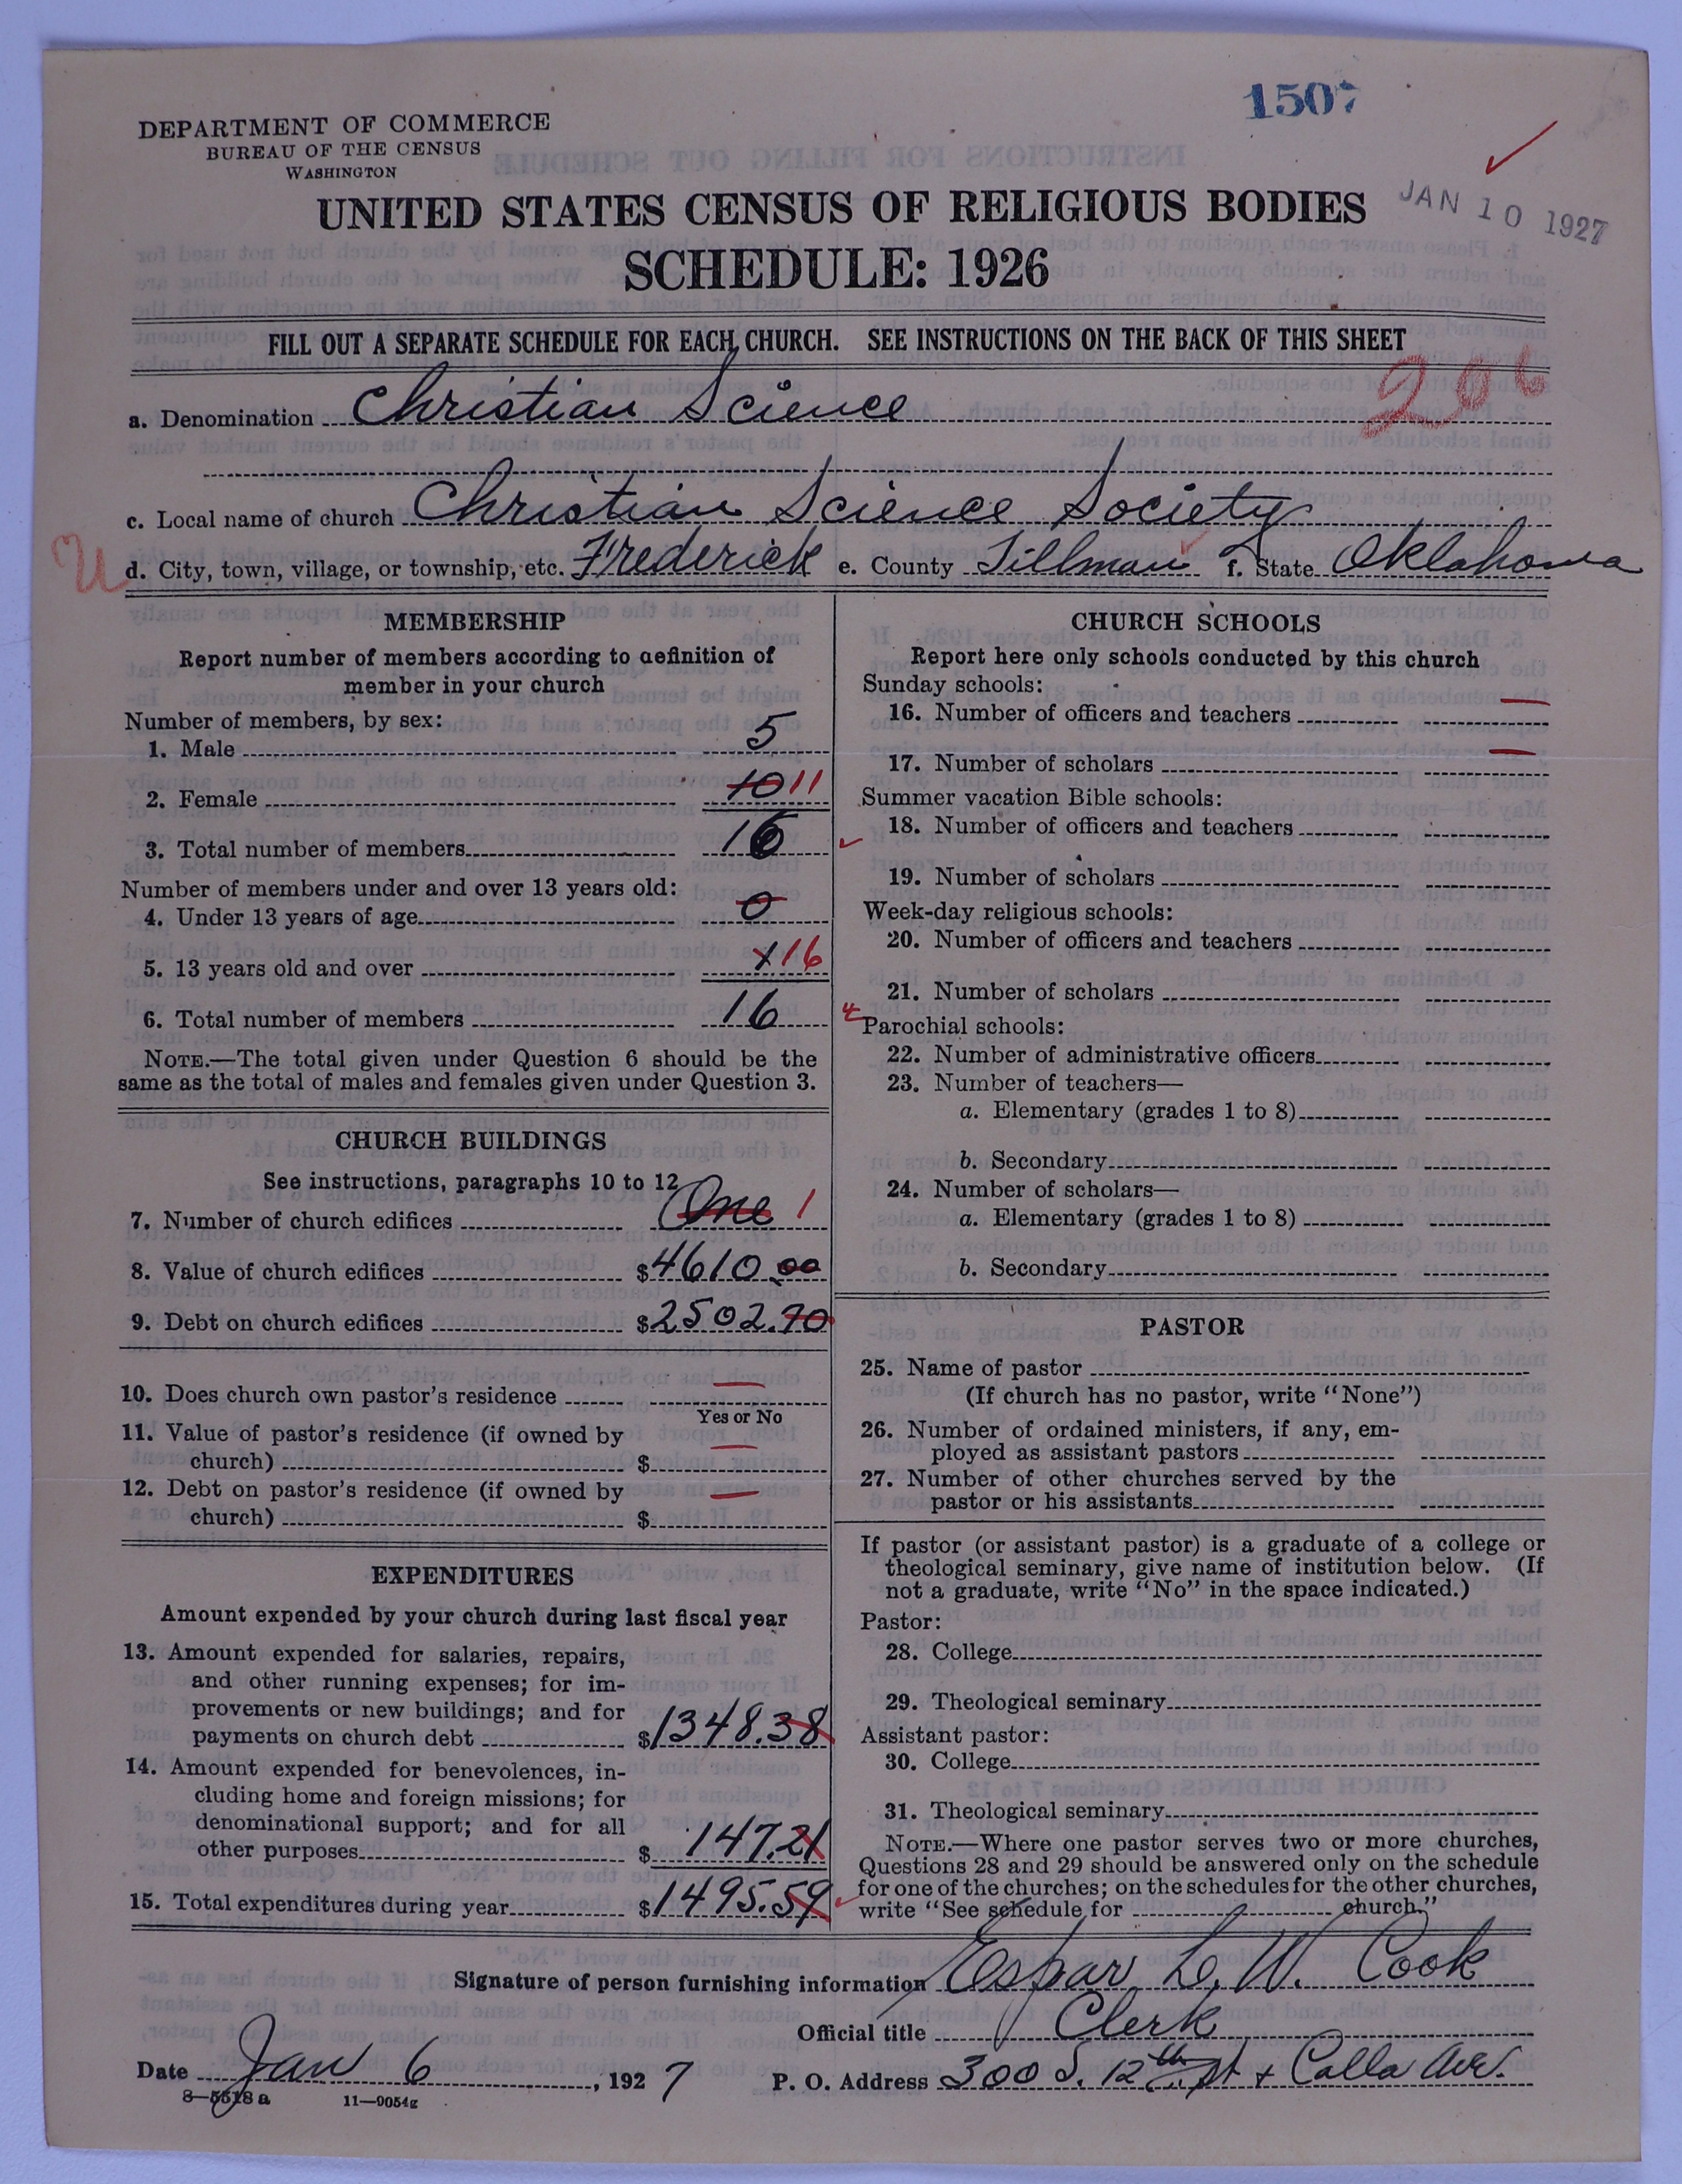 1507
DEPARTMENT OF COMMERCE
BUREAU OF THE CENSUS
WASHINGTON
UNITED STATES CENSUS OF RELIGIOUS BODIES
JAN 10 1927
SCHEDULE: 1926
FILL OUT A SEPARATE SCHEDULE FOR EACH CHURCH. SEE INSTRUCTIONS ON THE BACK OF THIS SHEET
206
a. Denomination Christian Science
c. Local name of church Christian Science Society
U
d. City, town, village, or township, etc. Frederick e. County Tillman f. State Oklahoma
MEMBERSHIP
Report number of members according to definition of
member in your church
Number of members, by sex:
1. Male 5
2. Female 10 11
3. Total number of members 16
Number of members under and over 13 years old:
4. Under 13 years of age 0
5. 13 years old and over x 16
6. Total number of members 16
NOTE.—The total given under Question 6 should be the
same as the total of males and females given under Question 3.
CHURCH BUILDINGS
See instructions, paragraphs 10 to 12
7. Number of church edifices One 1
8. Value of church edifices $4610.00
9. Debt on church edifices $2502.70
10. Does church own pastor's residence —
Yes or No
11. Value of pastor's residence (if owned by
church) $ —
12. Debt on pastor's residence (if owned by
church) $ —
EXPENDITURES
Amount expended by your church during last fiscal year
13. Amount expended for salaries, repairs,
and other running expenses; for im-
provements or new buildings; and for
payments on church debt $1348.38
14. Amount expended for benevolences, in-
cluding home and foreign missions; for
denominational support; and for all
other purposes $147.21
15. Total expenditures during year $1495.59
CHURCH SCHOOLS
Report here only schools conducted by this church
Sunday schools:
16. Number of officers and teachers —
17. Number of scholars —
Summer vacation Bible schools:
18. Number of officers and teachers
19. Number of scholars
Week-day religious schools:
20. Number of officers and teachers
21. Number of scholars
4
Parochial schools:
22. Number of administrative officers
23. Number of teachers—
a. Elementary (grades 1 to 8)
b. Secondary
24. Number of scholars—
a. Elementary (grades 1 to 8)
b. Secondary
PASTOR
25. Name of pastor
(If church has no pastor, write "None")
26. Number of ordained ministers, if any, em-
ployed as assistant pastors
27. Number of other churches served by the
pastor or his assistants
If pastor (or assistant pastor) is a graduate of a college or
theological seminary, give name of institution below. (If
not a graduate, write "No" in the space indicated.)
Pastor:
28. College
29. Theological seminary
Assistant pastor:
30. College
31. Theological seminary
NOTE.—Where one pastor serves two or more churches,
Questions 28 and 29 should be answered only on the schedule
for one of the churches; on the schedules for the other churches,
write "See schedule for church."
Signature of person furnishing information Espar L. W. Cook
Official title Clerk
Date Jan 6, 1927 P. O. Address 300 S. 12th St + Calla Ave.
8—5518 a 11—9054g